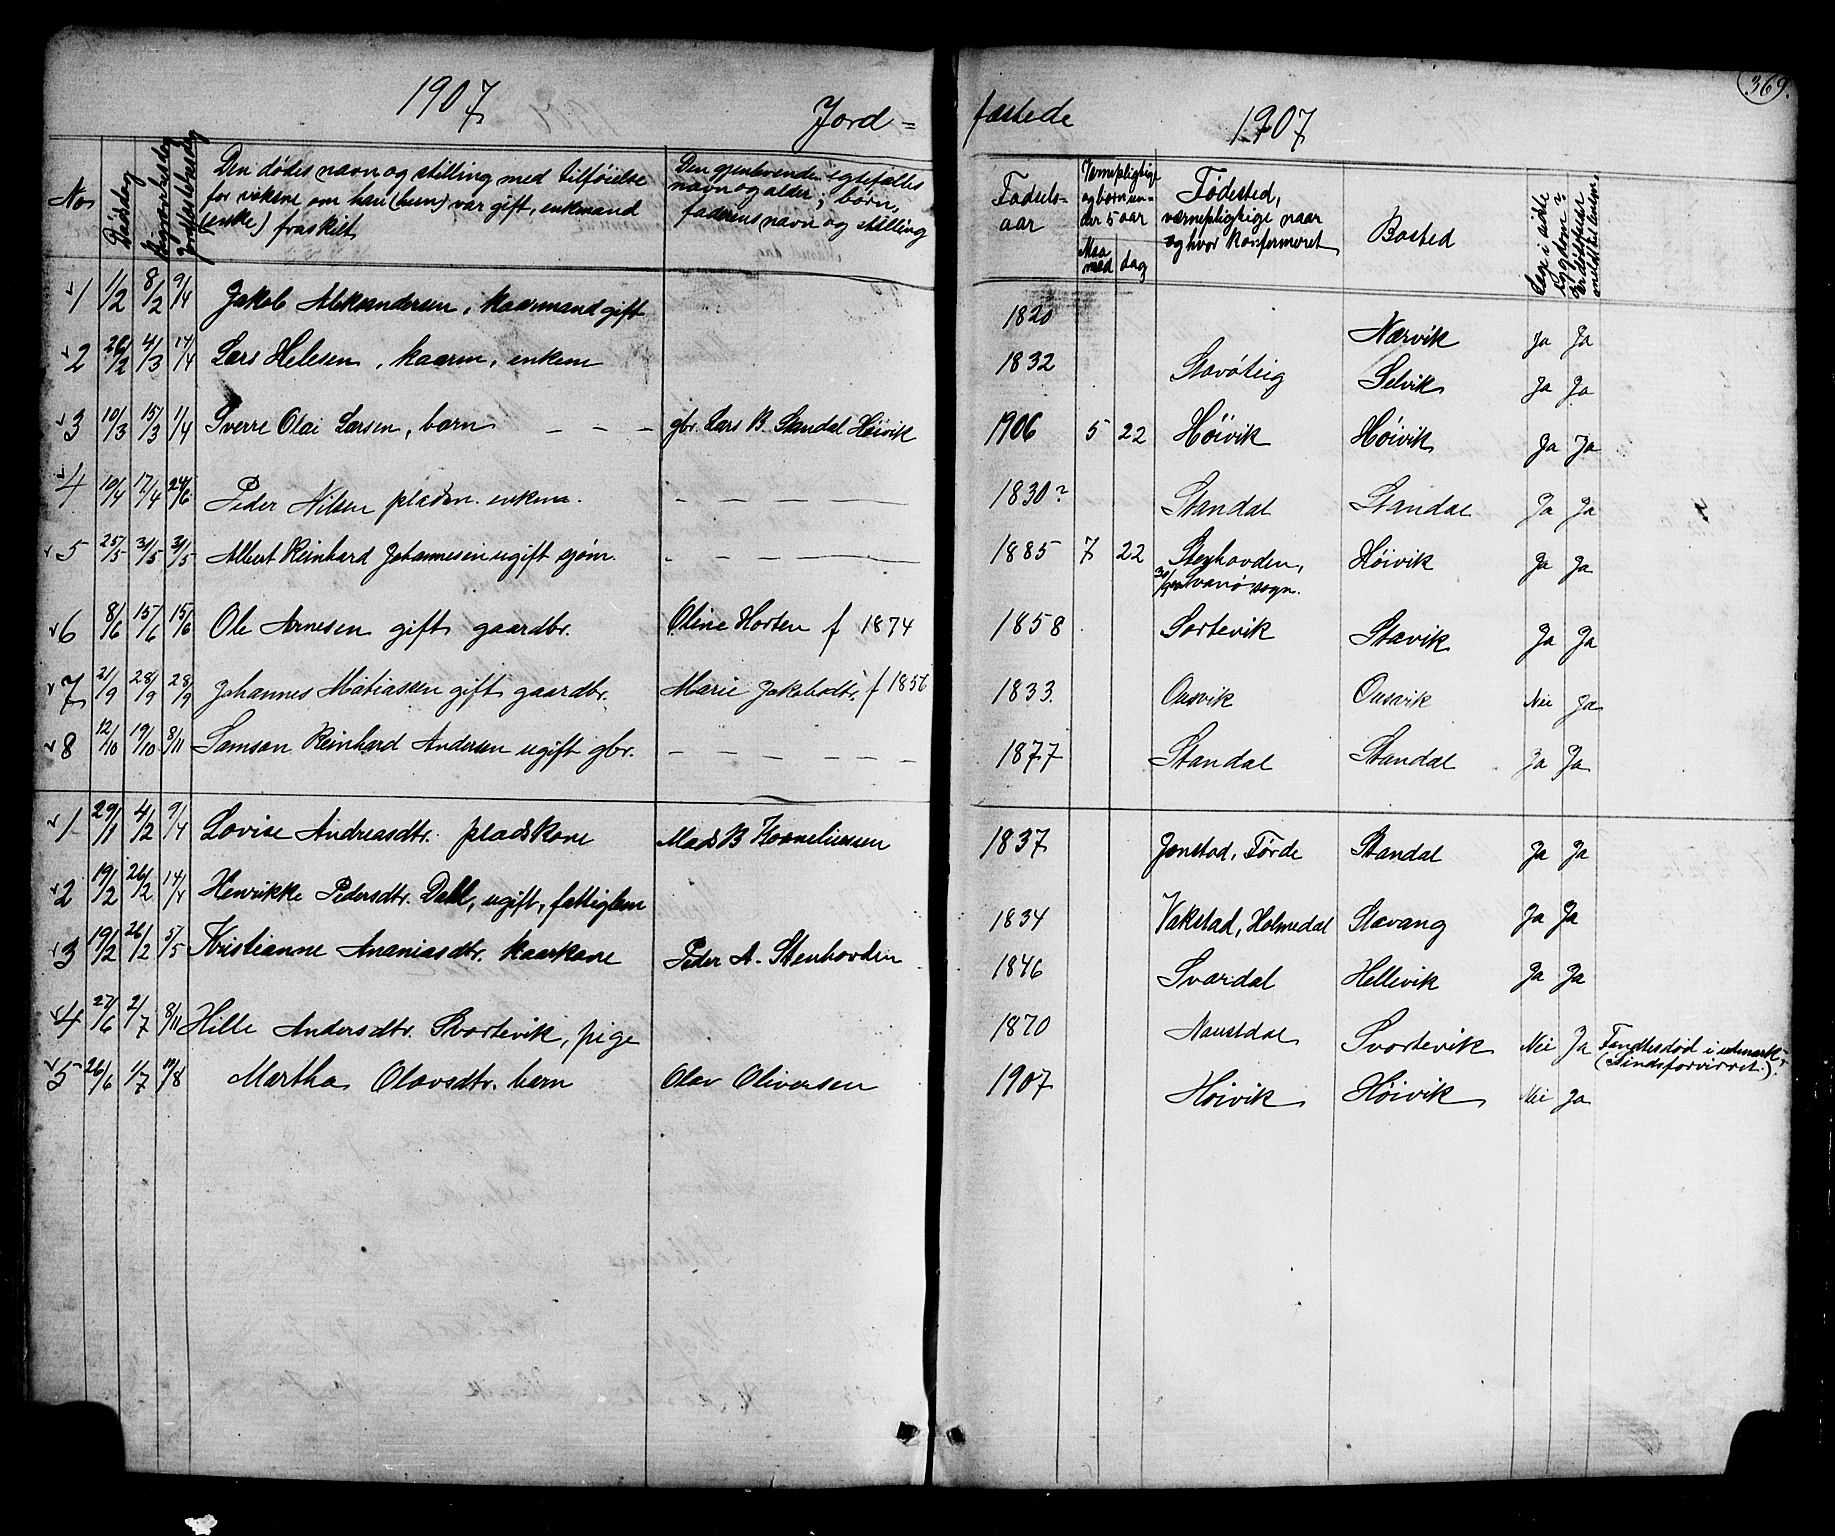 1907 Jord= fæstede 1907 369.
No
Dødsdag
Begravelsesdag
Jordfæstelsesdag
Den dødes navn og stilling med tilføielse
for voksne om han (hun) var gift, enkemand
(enke) fraskilt
Den gjenlevende egtefælles
navn og alder; børn,
faderens navn og stilling
Fødsels-
aar
Værnepligtige
og børn un-
der 5 aar
Maa
ned
dag
Fødested,
værnepligtige naar
og hvor konfirmeret
Bosted
Læge i sidste
sygdom?
Er dødsfaldet
anmeldt til lensm.
1 1/2 8/2 9/4 Jakob Aleksandersen, kaarmand gift 1820 Nærvik Ja Ja
2 26/2 4/3 14/4 Lars Helesen, kaarm, enkem 1832 Stavøteig Selvik Ja Ja
3 10/3 15/3 1/4 Sverre Olai Larsen, barn — — — gbr. Lars B. Standal Høivik 1906 5 22 Høivik Høivik Ja Ja
4 10/4 17/4 24/6 Peder Nilsen pladsm. enkem. — — — — 1830? Standal Standal Ja Ja
5 25/5 31/5 31/5 Albert Reinhard Johannesen ugift sjøm. — — — — 1885 7 22 Stenhovden, Høivik Ja Ja
Svanø sogn.
6 8/6 15/6 15/6 Ole Arnesen gift gaardbr. Oline Horten f 1874 1858 Sortevik Stavik Ja Ja
7 21/9 28/9 28/9 Johannes Matiassen gift gaardbr. Marie Jakobsdtr. f 1856 1833. Ousvik Ousvik Nei Ja
8 12/10 19/10 8/11 Samson Reinhard Andersen ugift gbr. — — — — — 1877 Standal Standal Ja Ja
1 29/1 4/2 9/4 Lovise Andreasdtr. pladskone Mads B Korneliussen 1837 Jonstad, Førde Standal Ja Ja
2 19/2 26/2 14/4 Henrikke Pedersdtr. Dahl, ugift, fattiglem 1834 Vakstad, Holmedal Stavang Ja Ja
3 19/2 26/2 5/5 Kristianne Ananiasdtr. kaarkone Peder A. Stenhovden 1846 Svardal Hellevik Ja Ja
4 27/6 2/7 8/11 Hille Andersdtr. Svortevik, pige 1870 Naustdal Svortevik Nei Ja Fandtes død i udmark
(Sindsforvirret.)
5 26/6 1/7 /8 Martha Olavsdtr. barn Olav Oliversen 1907 Høivik Høivik Nei Ja